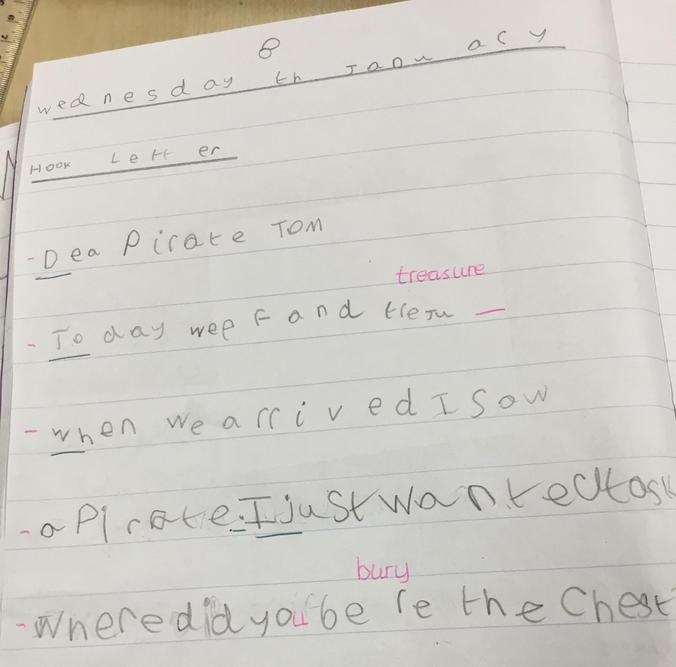 8
wednesday th January
Hook Letter
- Dea Pirate TOM
treasure
- To day wep F and treju —
- when we arrived I Saw
- a Pirate. I just wanted to ask
bury
- where did you be re the Chest